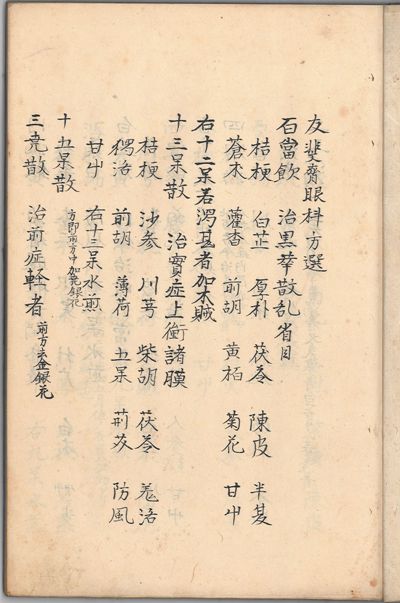 友斐齋眼科方選
石當飲 治黒睛散乱者目
桔梗 白芷 厚朴 茯苓 陳皮 半夏
蒼朮 藿香 前胡 黄栢 菊花 甘艸
右十二味若瀉甚者加木賊
十三味散 治實症上衝諸膜
桔梗 沙参 川芎 柴胡 茯苓 羗活
獨活 前胡 薄荷 五味 荊芥 防風
甘艸 右十三味水煎
十五味散 方即前方中加金銀花
三堯散 治前症軽者 前方去金銀花